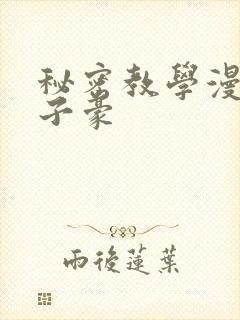 秘密教學漫
子豪
雨後蓮葉